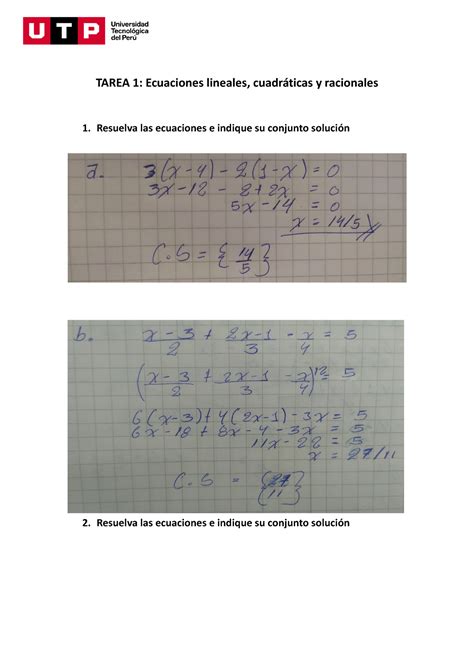 UTP Universidad
Tecnológica
del Perú
TAREA 1: Ecuaciones lineales, cuadráticas y racionales
1. Resuelva las ecuaciones e indique su conjunto solución
a. 3(x-4) - 2(1-x) = 0
3x - 12 - 2 + 2x = 0
5x - 14 = 0
x = 14/5
C.S = {14/5}
b. x-3/2 + 2x-1/3 - x/4 = 5
(x-3/2 + 2x-1/3 - x/4)12 = 5
6(x-3) + 4(2x-1) - 3x = 5
6x - 18 + 8x - 4 - 3x = 5
11x - 22 = 5
x = 27/11
C.S = {27/11}
2. Resuelva las ecuaciones e indique su conjunto solución